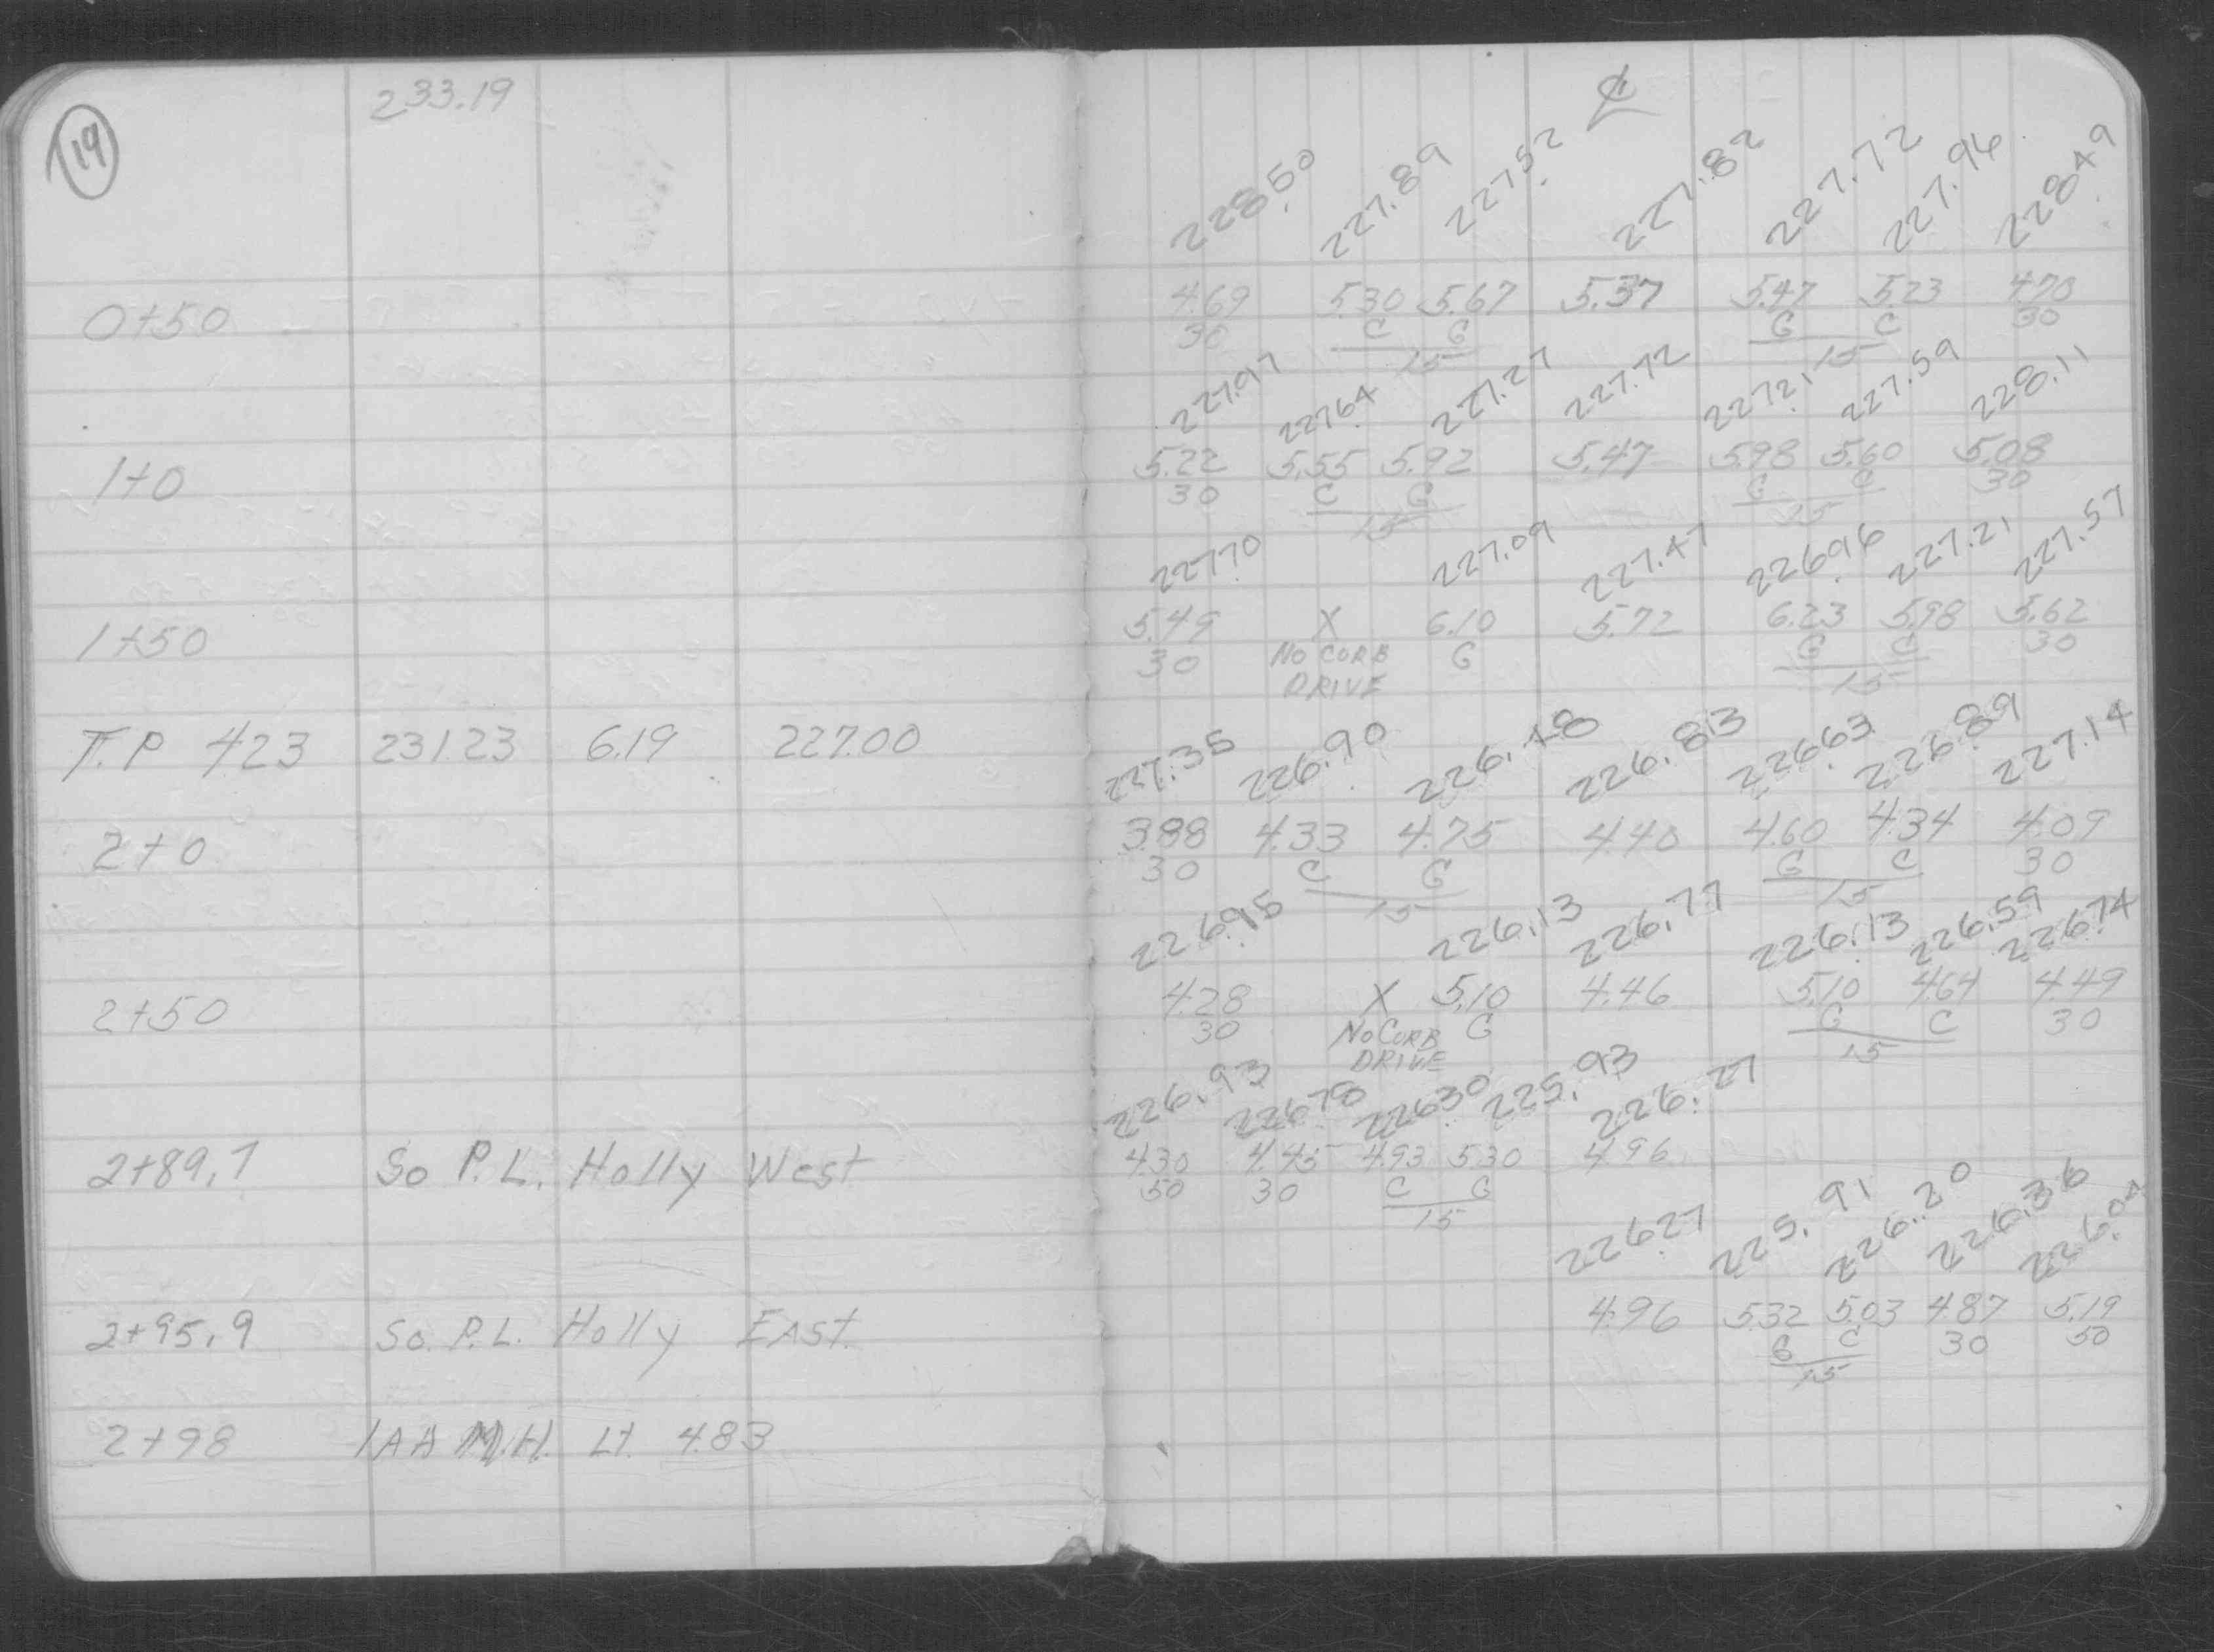 19
233.19
℄
228.50 227.89 227.52 227.82 227.72 227.96 228.49
0+50 4.69 5.30 5.67 5.37 5.47 5.23 4.70
30 C G G C 30
15 15
227.97 227.64 227.27 227.72 227.21 227.59 228.11
1+0 5.22 5.55 5.92 5.47 5.98 5.60 5.08
30 C G G C 30
15 15
227.70 227.09 227.47 226.96 227.21 227.57
1+50 5.49 X 6.10 5.72 6.23 5.98 5.62
30 NO CURB G G C 30
DRIVE 15
T.P 4.23 231.23 6.19 227.00
227.35 226.90 226.48 226.83 226.63 226.89 227.14
2+0 3.88 4.33 4.75 4.40 4.60 4.34 4.09
30 C G G C 30
15 15
226.95 226.13 226.77 226.13 226.59 226.74
2+50 4.28 X 5.10 4.46 5.10 4.64 4.49
30 NO CURB G G C 30
DRIVE 15
226.93 226.78 226.30 225.93 226.27
2+89.7 So P.L. Holly West 4.30 4.45 4.93 5.30 4.96
50 30 C G
15
226.27 225.91 226.20 226.36 226.04
2+95.9 So. P.L. Holly EAST. 4.96 5.32 5.03 4.87 5.19
G C 30 50
15
2+98 M.H. Lt. 4.83